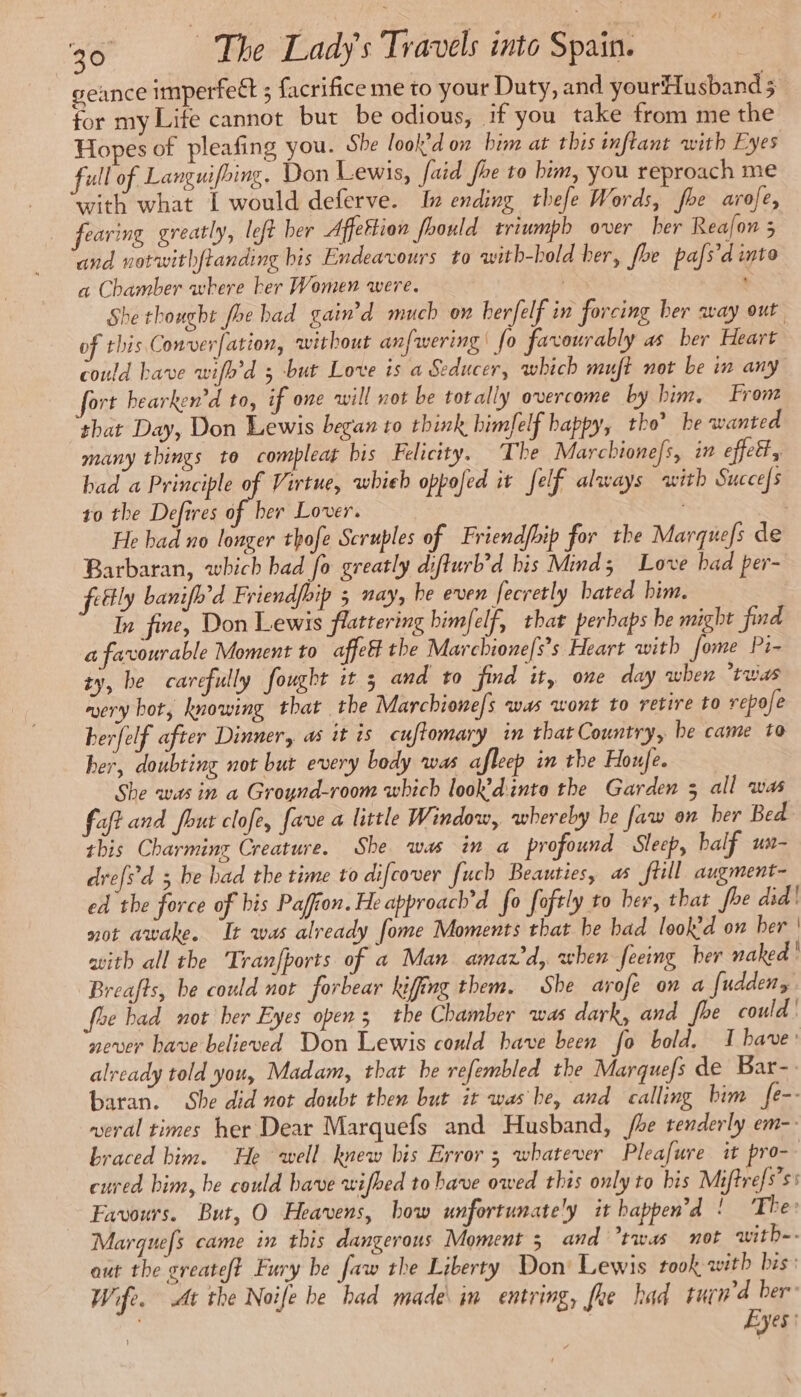 30 The Lady's Travels into Spain.
geance imperfect ; ſacrifice me to your Duty, and your Husband ;
for my Life cannot but be odious, if you take from me the
Hopes of pleaſing you. She look'd on him at this inſtant with Eyes
full of Languiſhing. Don Lewis, ſaid ſhe to him, you reproach me
with what I would deſerve. In ending theſe Words, ſhe aroſe,
fearing greatly, left her Affection ſhould triumph over her Reaſon ;
and notwithſtanding his Endeavours to with-hold her, ſhe paſs'd into
a Chamber where her Women were.
She thought ſhe had gain'd much on herſelf in forcing her way out
of this Converſation, without anſwering ſo favourably as her Heart
could have wiſh'd ; but Love is a Seducer, which muſt not be in any
ſort hearken'd to, if one will not be totally overcome by him. From
that Day, Don Lewis began to think himſelf happy, tho' he wanted
many things to compleat his Felicity. The Marchioneſs, in effect,
had a Principle of Virtue, which oppoſed it ſelf always with Succeſs
to the Deſires of her Lover.
He had no longer thoſe Scruples of Friendſhip for the Marqueſs de
Barbaran, which had ſo greatly diſturb'd his Mind; Love had per-
fectly baniſh'd Friendſhip ; nay, he even ſecretly hated him.
In fine, Don Lewis flattering himſelf, that perhaps he might find
a favourable Moment to affect the Marchioneſs's Heart with ſome Pi-
ty, he carefully ſought it ; and to find it, one day when 'twas
very hot, knowing that the Marchioneſs was wont to retire to repoſe
herſelf after Dinner, as it is cuſtomary in that Country, he came to
her, doubting not but every body was aſleep in the Houſe.
She was in a Ground-room which look'd into the Garden ; all was
faſt and ſhut cloſe, ſave a little Window, whereby he ſaw on her Bed
this Charming Creature. She was in a profound Sleep, half un-
dreſs'd ; he had the time to diſcover ſuch Beauties, as ſtill augment-
ed the force of his Paſſion. He approach'd ſo ſoftly to her, that ſhe did
not awake. It was already ſome Moments that he had look'd on her
with all the Tranſports of a Man amaz'd, when ſeeing her naked
Breaſts, he could not forbear kiſſing them. She aroſe on a ſudden,
ſhe had not her Eyes open ; the Chamber was dark, and ſhe could
never have believed Don Lewis could have been ſo bold. I have
already told you, Madam, that he reſembled the Marqueſs de Bar-
baran. She did not doubt then but it was he, and calling him ſe-
veral times her Dear Marqueſs and Husband, ſhe tenderly em-
braced him. He well knew his Error ; whatever Pleaſure it pro-
cured him, he could have wiſhed to have owed this only to his Miſtreſs's
Favours. But, O Heavens, how unfortunately it happen'd ! The
Marqueſs came in this dangerous Moment ; and 'twas not with-
out the greateſt Fury he ſaw the Liberty Don Lewis took with his
Wife. At the Noiſe he had made in entring, ſhe had turn'd her
Eyes